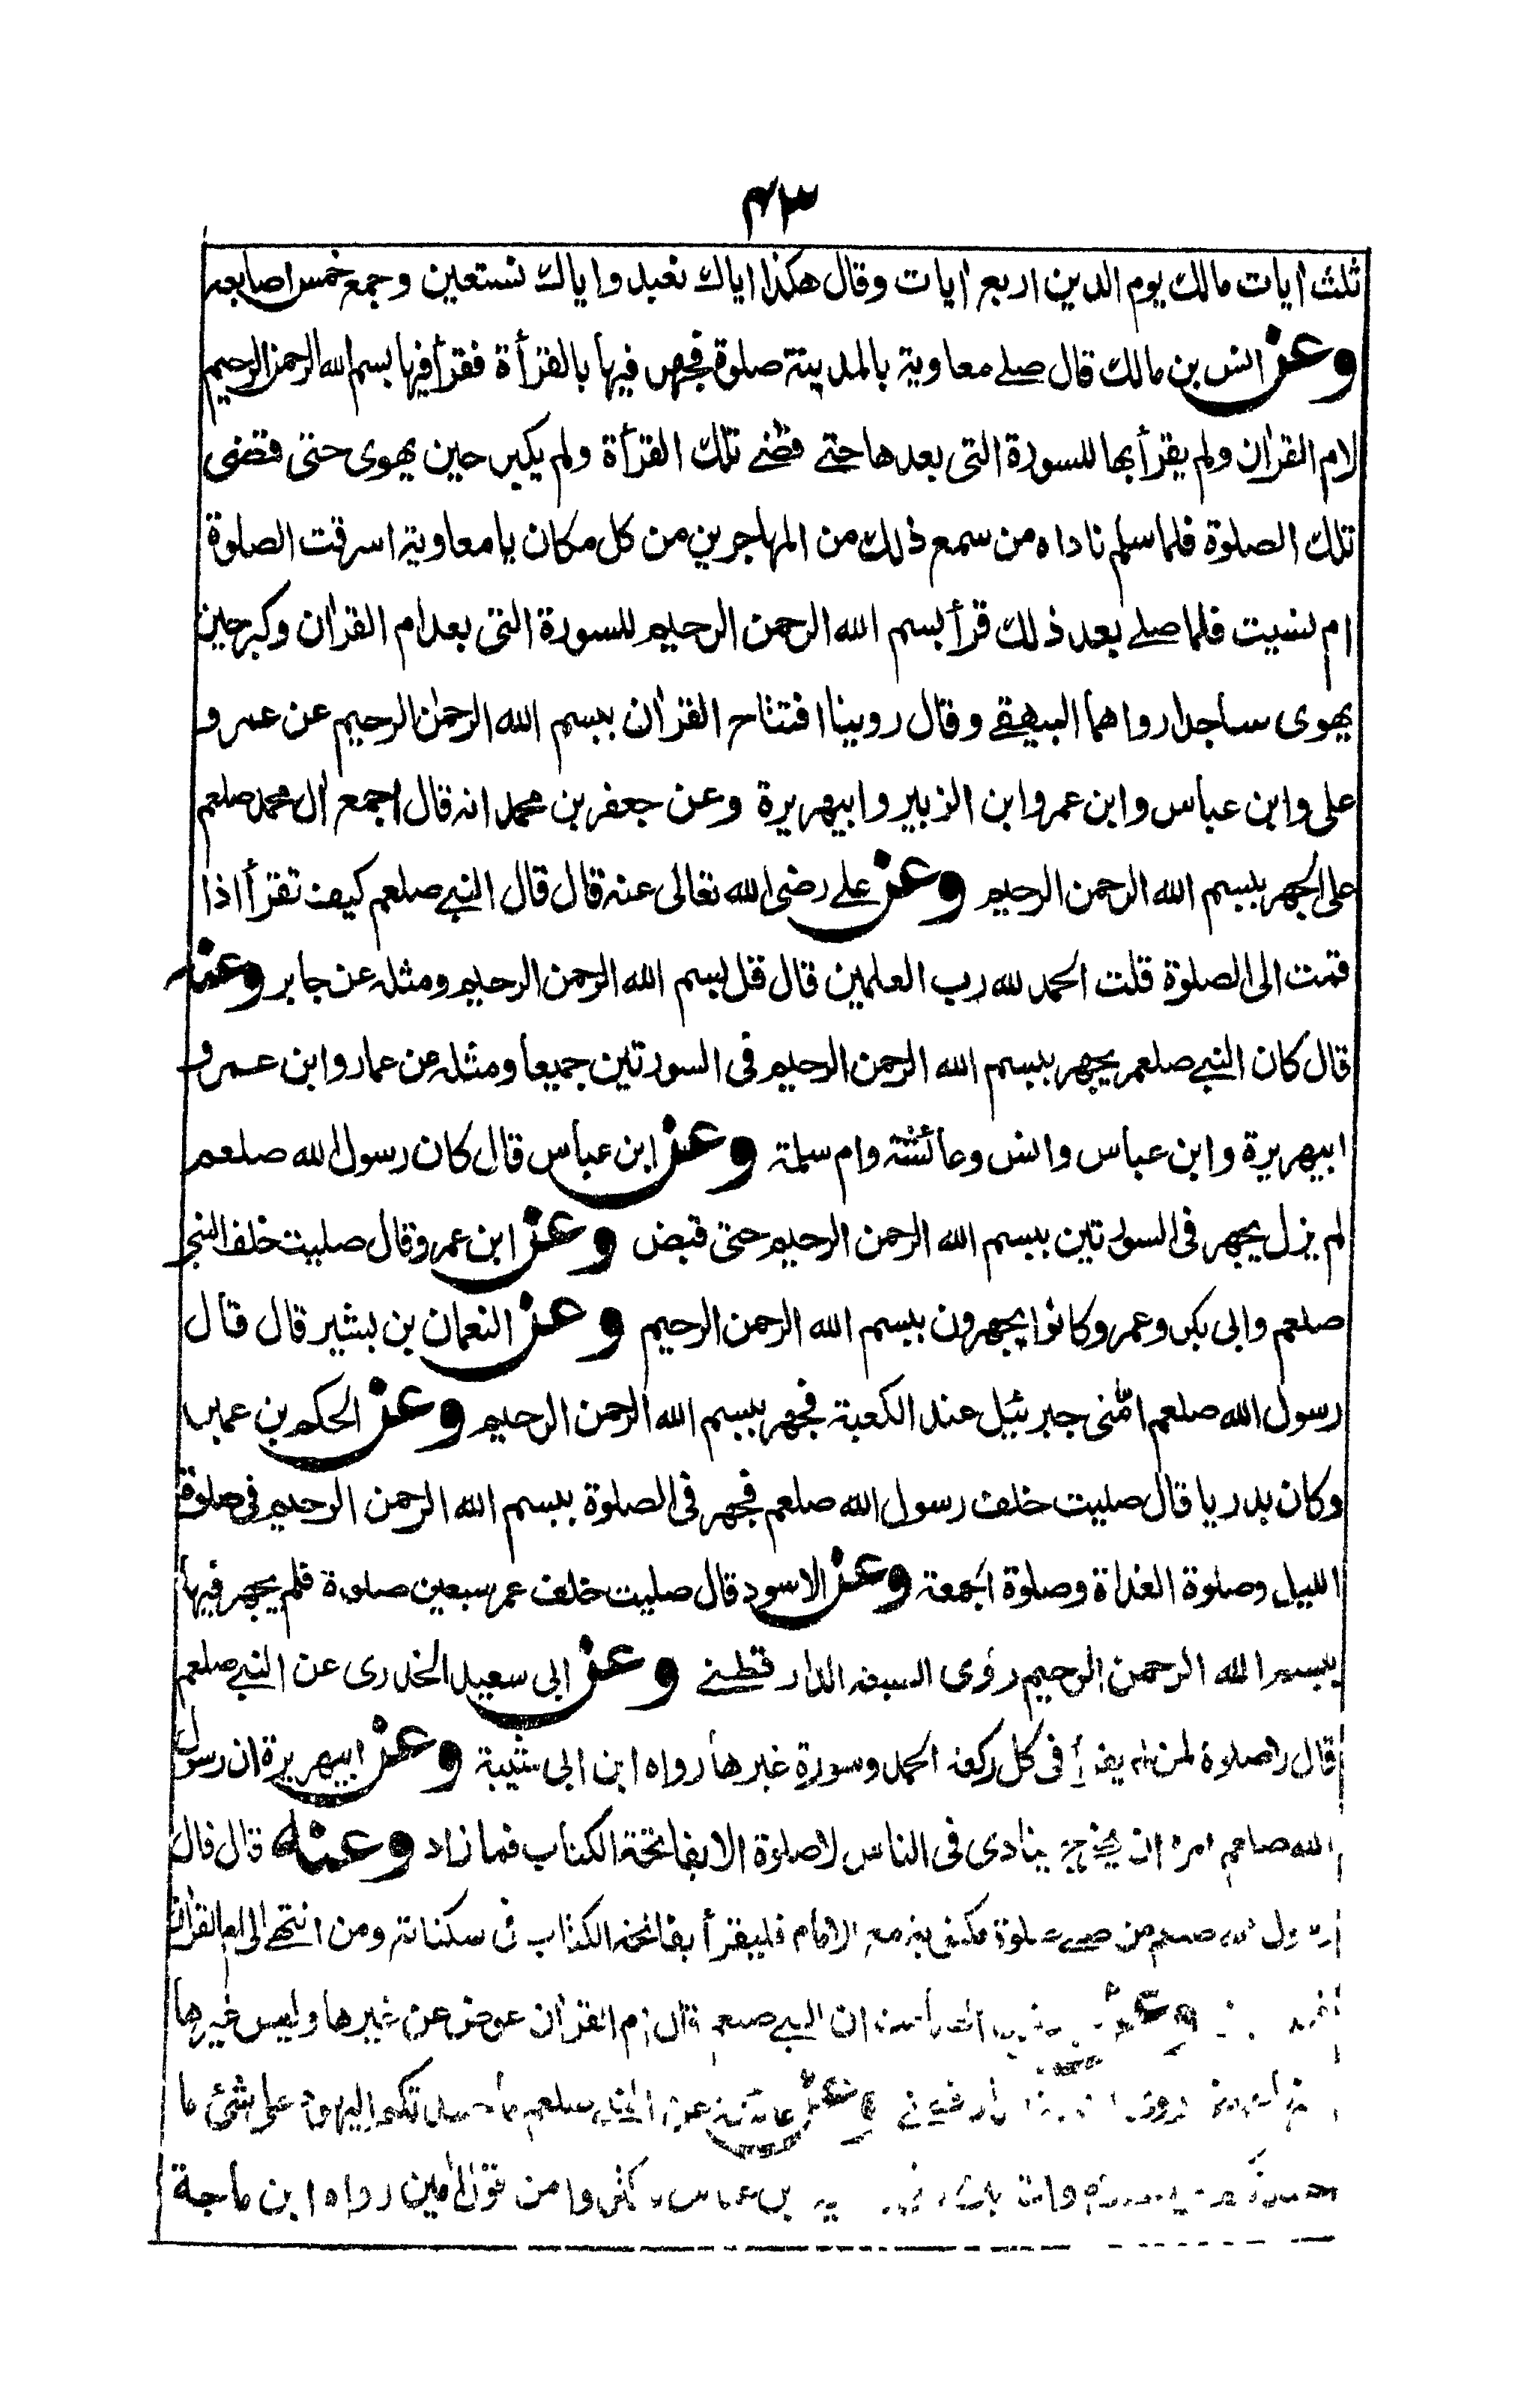 ۴۳
ثلث ايات مالك يوم الدين اربع ايات وقال هكذا اياك نعبد واياك نستعين وجمع خمس اصابعه
وعن انس بن مالك قال صلے معاوية بالمدينة صلوة فجهر فيها بالقرأة فقرأ فيها بسم الله الرحمن الرحيم
لام القرآن ولم يقرأ بها للسورة التى بعدها حتے قضے تلك القرأة ولم يكبر حين يهوى حتى قضى
تلك الصلوة فلما سلم ناداه من سمع ذلك من المهاجرين من كل مكان يا معاوية اسرقت الصلوة
ام نسيت فلما صلے بعد ذلك قرأ بسم الله الرحمن الرحيم للسورة التى بعد ام القرآن وكبر حين
يهوى ساجدا رواهما البيهقے وقال روينا افتتاح القرآن ببسم الله الرحمٰن الرحيم عن عمر و
على وابن عباس وابن عمر وابن الزبير وابيهريرة وعن جعفر بن محمد انه قال اجمع آل محمد صلعم
على الجهر ببسم الله الرحمن الرحيم وعن علے رضى الله تعالى عنه قال قال النبے صلعم كيف تقرأ اذا
قمت الى الصلوة قلت الحمد لله رب العلمين قال قل بسم الله الرحمن الرحيم ومثله عن جابر وعنه
قال كان النبے صلعم يجهر ببسم الله الرحمن الرحيم فى السورتين جميعا ومثله عن عمار وابن عمر و
ابيهريرة وابن عباس وانس وعائشة وام سلمة وعن ابن عباس قال كان رسول الله صلعم
لم يزل يجهر فى السورتين ببسم الله الرحمن الرحيم حتى قبض وعن ابن عمر وقال صليت خلف النبے
صلعم وابى بكر وعمر وكانوا يجهرون ببسم الله الرحمن الرحيم وعن النعمان بن بشير قال قال
رسول الله صلعم امّنى جبرئيل عند الكعبة فجهر ببسم الله الرحمن الرحيم وعن الحكم بن عمير
وكان بدريا قال صليت خلف رسول الله صلعم فجهر فى الصلوة ببسم الله الرحمن الرحيم فى صلوة
الليل وصلوة الغداة وصلوة الجمعة وعن الاسود قال صليت خلف عمر سبعين صلوة فلم يجهر فيها
ببسم الله الرحمن الرحيم روى السبعه الدارقطنے وعن ابى سعيد الخدرى عن النبے صلعم
قال لا صلوة لمن لم يقرأ فى كل ركعة الحمد وسورة غيرها رواه ابن ابى شيبة وعن ابيهريرة ان رسول
الله صلعم امره ان يخرج ينادى فى الناس لا صلوة الا بفاتحة الكتاب فما زاد وعنه قال قال
رسول الله صلعم من صلے صلوة مكتوبة مع الامام فليقرأ بفاتحة الكتاب فى سكتاته ومن انتهے الى ام القرآن
وعن ان النبے صلعم قال ام القرآن عوض عن غيرها وليس غيرها
وعن عائشة عن النبے صلعم ما حسدتكم اليهود على شئ ما
ابن عباس فاكثروا من قول آمين رواه ابن ماجة